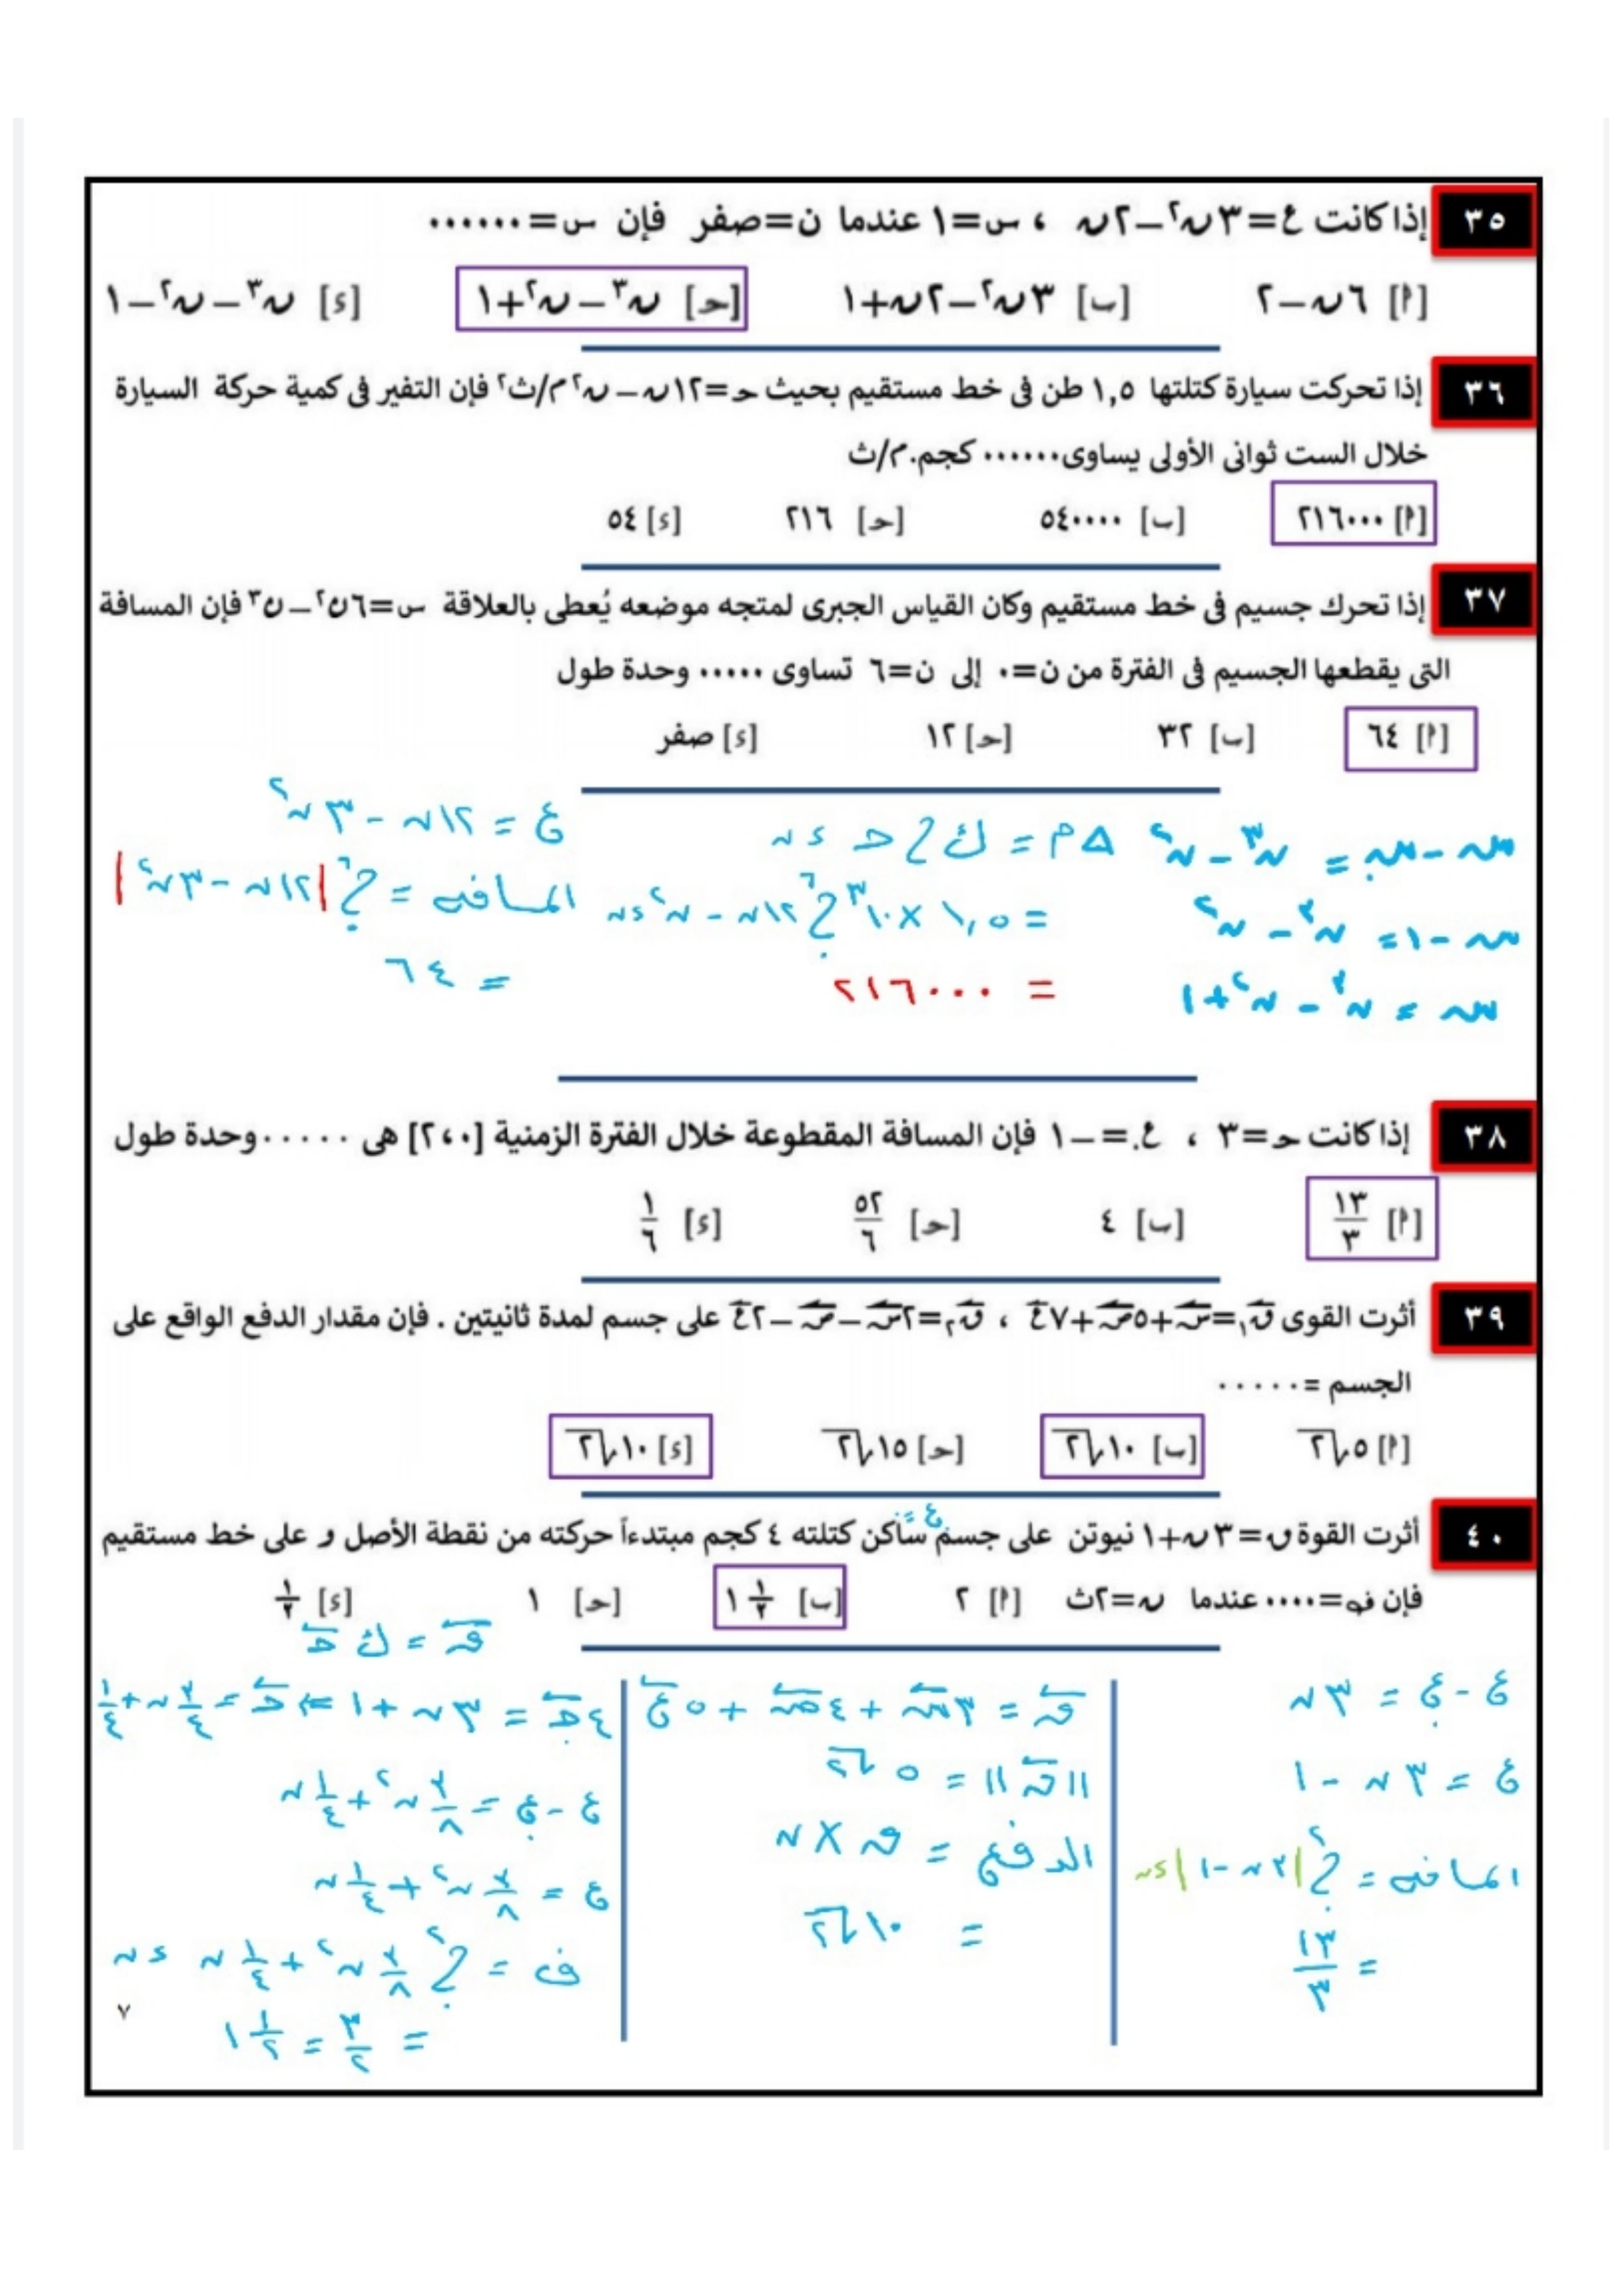 ٣٥ إذا كانت ع=٣ن٢−٢ن ، س=١ عندما ن=صفر فإن س=......
[أ] ٦ن−٢ [ب] ٣ن٢−٢ن+١ [حـ] ن٣−ن٢+١ [ء] ن٣−ن٢−١
٣٦ إذا تحركت سيارة كتلتها ١,٥ طن فى خط مستقيم بحيث حـ=١٢ن−ن٢ م/ث٢ فإن التفير فى كمية حركة السيارة
خلال الست ثوانى الأولى يساوى...... كجم.م/ث
[أ] ٢١٦٠٠٠ [ب] ٥٤٠٠٠٠ [حـ] ٢١٦ [ء] ٥٤
٣٧ إذا تحرك جسيم فى خط مستقيم وكان القياس الجبرى لمتجه موضعه يُعطى بالعلاقة س=٦ن٢−ن٣ فإن المسافة
التى يقطعها الجسيم فى الفترة من ن=٠ إلى ن=٦ تساوى ..... وحدة طول
[أ] ٦٤ [ب] ٣٢ [حـ] ١٢ [ء] صفر
س−س. = ن٣−ن٢
س−١ = ن٣−ن٢
س = ن٣−ن٢+١
Δم = ك∫حـ ءن
= ١,٥×١٠٣ ∫٠٦ ١٢ن−ن٢ ءن
= ٢١٦٠٠٠
ع = ١٢ن−٣ن٢
المسافه = ∫٠٦ |١٢ن−٣ن٢|
= ٦٤
٣٨ إذا كانت حـ=٣ ، ع.=−١ فإن المسافة المقطوعة خلال الفترة الزمنية [٢،٠] هى ..... وحدة طول
[أ] ١٣/٣ [ب] ٤ [حـ] ٥٢/٦ [ء] ١/٦
٣٩ أثرت القوى ق١=س+٥ص+٧ع ، ق٢=٢س−ص−٢ع على جسم لمدة ثانيتين . فإن مقدار الدفع الواقع على
الجسم =.....
[أ] ٥√٢ [ب] ١٠√٢ [حـ] ١٥√٢ [ء] ١٠√٢
٤٠ أثرت القوة ق=٣ن+١ نيوتن على جسم ساكن كتلته ٤ كجم مبتدءاً حركته من نقطة الأصل و على خط مستقيم
ع.=٠
فإن ف=.... عندما ن=٢ث [أ] ٢ [ب] ١ ١/٢ [حـ] ١ [ء] ١/٢
ع−ع. = ٣ن
ع = ٣ن−١
المسافه = ∫٠٢ |٣ن−١| ءن
= ١٣/٣
ق = ٣س+٤ص+٥ع
||ق|| = ٥√٢
الدفع = ق×ن
= ١٠√٢
ق = ك حـ
٤حـ = ٣ن+١ ⇒ حـ = ٣/٤ ن+١/٤
ع−ع. = ٣/٨ ن٢+١/٤ ن
ع = ٣/٨ ن٢+١/٤ ن
ف = ∫٠٢ ٣/٨ ن٢+١/٤ ن ءن
= ٣/٢ = ١ ١/٢
٧